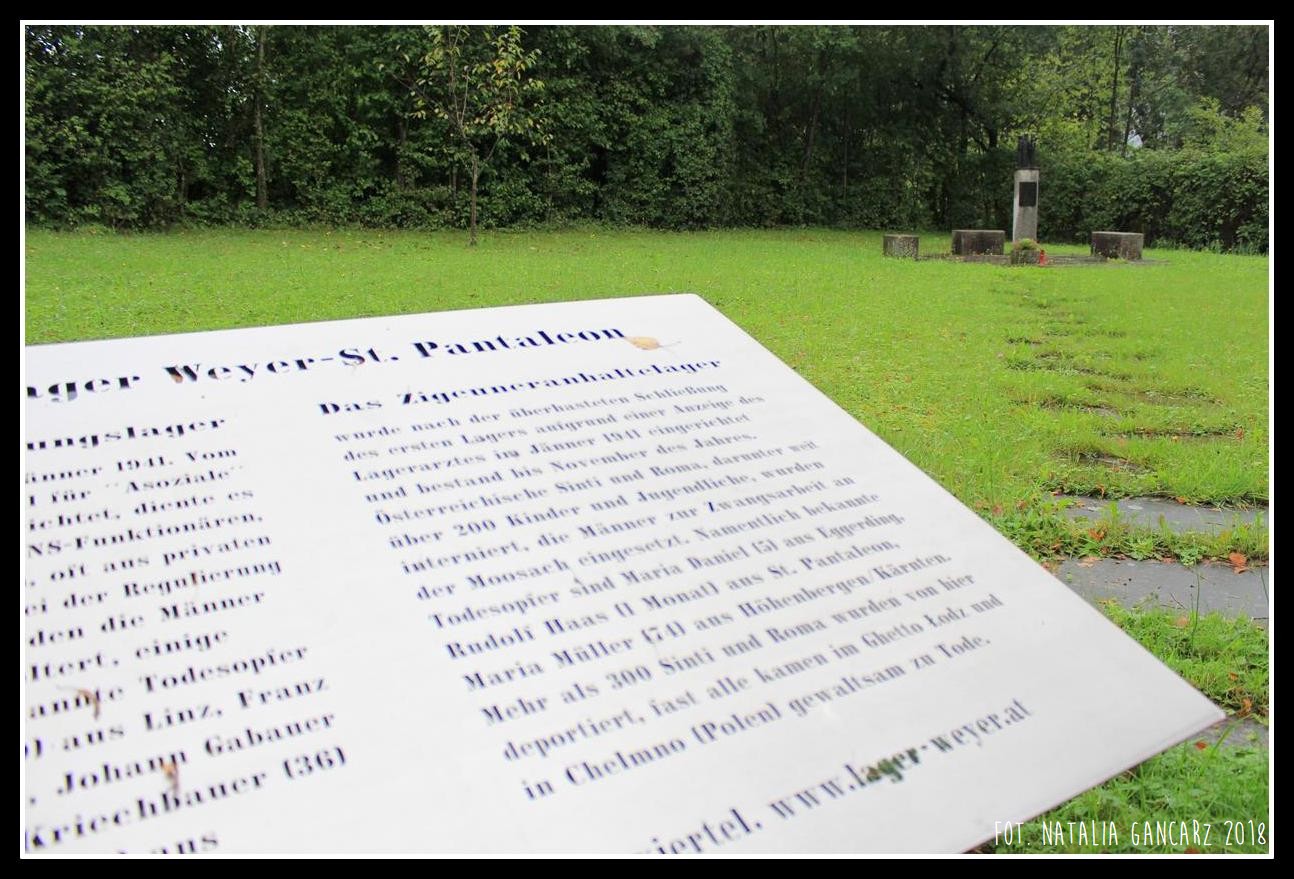 ager Weyer-St. Pantaleon
ungslager
änner 1941. Vom
für "Asoziale"
ichtet, diente es
NS-Funktionären,
, oft aus privaten
ei der Regulierung
den die Männer
ltert, einige
annte Todesopfer
) aus Linz, Franz
, Johann Gabauer
Kriechbauer (36)
aus
Das Zigeuneranhaltelager
wurde nach der überhasteten Schließung
des ersten Lagers aufgrund einer Anzeige des
Lagerarztes im Jänner 1941 eingerichtet
und bestand bis November des Jahres.
Österreichische Sinti und Roma, darunter weit
über 200 Kinder und Jugendliche, wurden
interniert, die Männer zur Zwangsarbeit an
der Moosach eingesetzt. Namentlich bekannte
Todesopfer sind Maria Daniel (5) aus Eggerding,
Rudolf Haas (1 Monat) aus St. Pantaleon,
Maria Müller (74) aus Höhenbergen/Kärnten.
Mehr als 300 Sinti und Roma wurden von hier
deportiert, fast alle kamen im Ghetto Łodz und
in Chelmno (Polen) gewaltsam zu Tode.
viertel. www.lager-weyer.at
FOT. NATALIA GANCARZ 2018